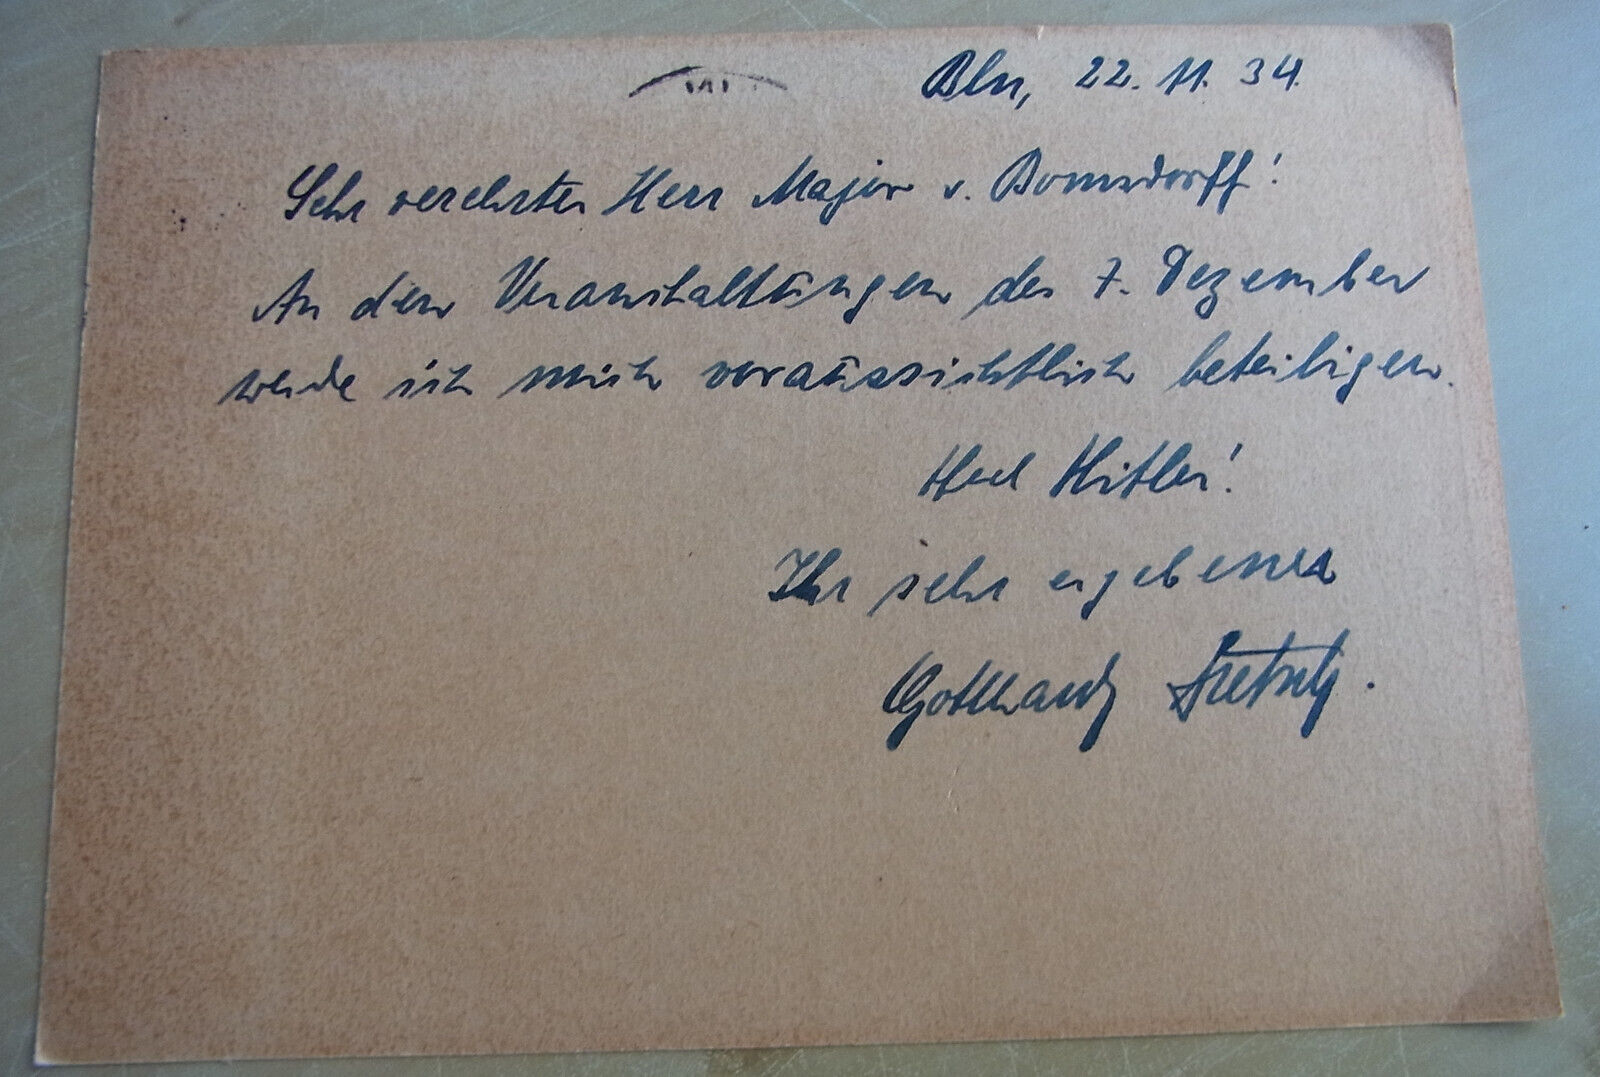 Bln, 22. 11. 34.
Sehr verehrter Herr Major v. Bomsdorff!
An den Veranstaltungen des 7. Dezember
werde ich mich voraussichtlich beteiligen.
Heil Hitler!
Ihr sehr ergebener
Gotthard